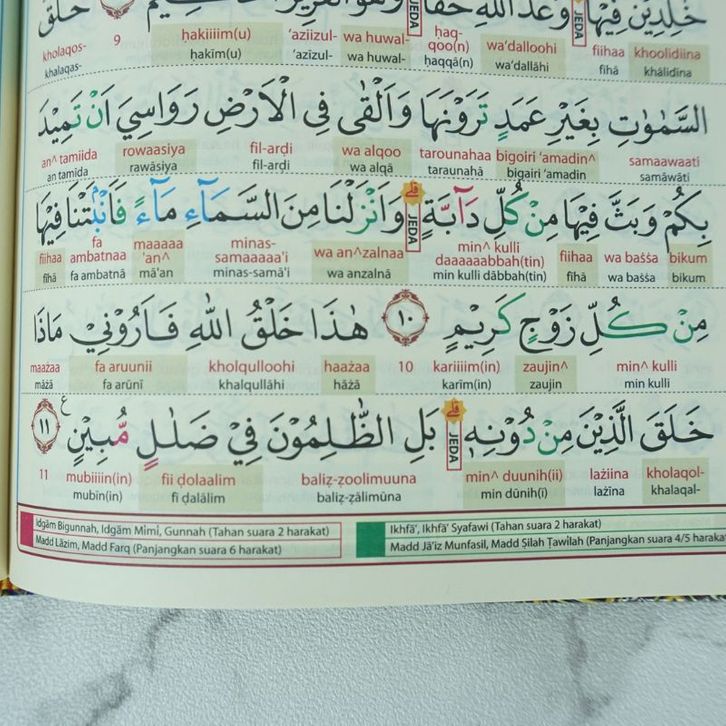 خٰلِدِيْنَ فِيْهَا وَعْدَ اللّٰهِ حَقًّا JEDA وَهُوَ الْعَزِيْزُ الْحَكِيْمُ ٩ خَلَقَ
khoolidiina fiihaa wa‘dalloohi haq-qoo(n) wa huwal- ‘aziizul- ḥakiiim(u) 9 kholaqos-
khālidīna fīhā wa‘dallāhi ḥaqqā(n) wa huwal- ‘azīzul- ḥakīm(u) khalaqas-
السَّمٰوٰتِ بِغَيْرِ عَمَدٍ تَرَوْنَهَا وَاَلْقٰى فِى الْاَرْضِ رَوَاسِيَ اَنْ تَمِيْدَ
samaawaati bigoiri ‘amadin^ tarounahaa wa alqoo fil-arḍi rowaasiya an^ tamiida
samāwāti bigairi ‘amadin taraunahā wa alqā fil-arḍi rawāsiya an tamīda
بِكُمْ وَبَثَّ فِيْهَا مِنْ كُلِّ دَاۤبَّةٍۗ JEDA وَاَنْزَلْنَا مِنَ السَّمَاۤءِ مَاۤءً فَاَنْۢبَتْنَا فِيْهَا
bikum wa baṡṡa fiihaa min^ kulli daaaaaabbah(tin) wa an^zalnaa minas-samaaaaa'i maaaaa'an^ fa ambatnaa fiihaa
bikum wa baṡṡa fīhā min kulli dābbah(tin) wa anzalnā minas-samā'i mā'an fa ambatnā fīhā
مِنْ كُلِّ زَوْجٍ كَرِيْمٍ ١٠ هٰذَا خَلْقُ اللّٰهِ فَاَرُوْنِيْ مَاذَا
min^ kulli zaujin^ kariiiim(in) 10 haażaa kholqulloohi fa aruunii maażaa
min kulli zaujin karīm(in) hāżā khalqullāhi fa arūnī māżā
خَلَقَ الَّذِيْنَ مِنْ دُوْنِهٖۗ JEDA بَلِ الظّٰلِمُوْنَ فِيْ ضَلٰلٍ مُّبِيْنٍ ࣖ ١١
kholaqol- lażiina min^ duunih(ii) baliẓ-ẓoolimuuna fii ḍolaalim mubiiiin(in) 11
khalaqal- lażīna min dūnih(ī) baliẓ-ẓālimūna fī ḍalālim mubīn(in)
Idgām Bigunnah, Idgām Mīmī, Gunnah (Tahan suara 2 harakat)
Madd Lāzim, Madd Farq (Panjangkan suara 6 harakat)
Ikhfā', Ikhfā' Syafawi (Tahan suara 2 harakat)
Madd Jā'iz Munfasil, Madd Ṣilah Ṭawīlah (Panjangkan suara 4/5 haraka